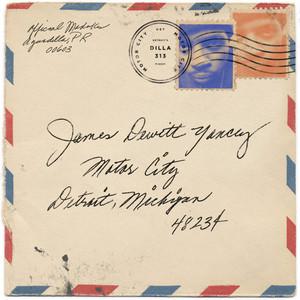 Official
Aguadilla, P.R
00603
MOTOR CITY
MOTOR CITY
DETROIT'S
DILLA
313
FINEST
James Dewitt Yancey
Motor City
Detroit, Michigan
48234